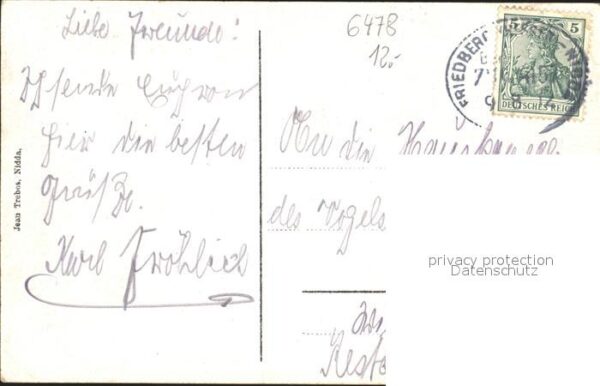 Liebe Freunde!
Ich sende Euch von
hier die besten
Grüße.
Karl Fröhlich
Jean Trebes, Nidda.
6478
12.-
5 5
FRIEDBERG
DEUTSCHES REICH
An die
des Vogels
Resta
privacy protection
Datenschutz